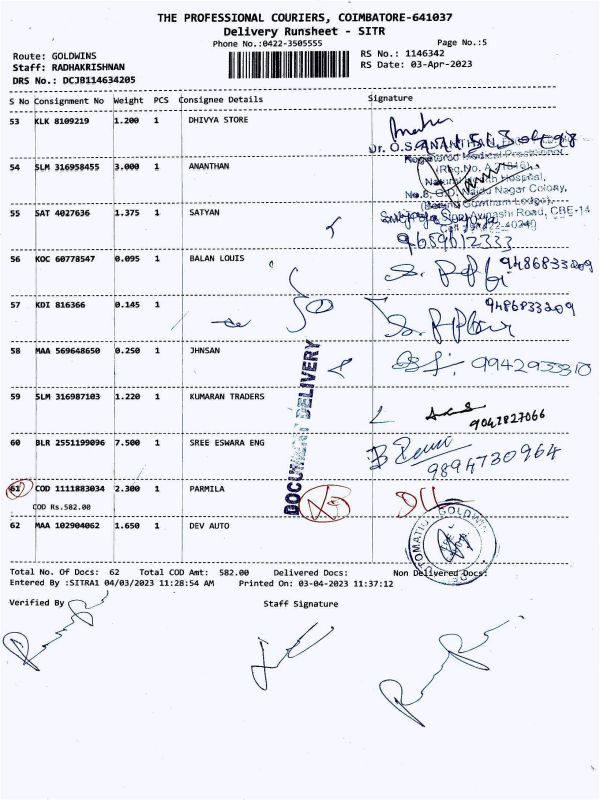 THE PROFESSIONAL COURIERS, COIMBATORE-641037
Delivery Runsheet - SITR
Phone No.:0422-3505555 Page No.:5
Route: GOLDWINS RS No.: 1146342
Staff: RADHAKRISHNAN RS Date: 03-Apr-2023
DRS No.: DCJB114634205
S No Consignment No Weight PCS Consignee Details Signature
53 KLK 8109219 1.200 1 DHIVYA STORE
Dr. O.S. ANANTHAN
Registered Medical Practitioner
54 SLM 316958455 3.000 1 ANANTHAN
(Reg.No. A
Hospital,
Naidu Nagar Colony,
55 SAT 4027636 1.375 1 SATYAN
Avinashi Road, CBE-14
9659612333
56 KOC 60778547 0.095 1 BALAN LOUIS 9486833209
57 KDI 816366 0.145 1 9486833209
58 MAA 569648650 0.250 1 JHNSAN 9942933310
59 SLM 316987103 1.220 1 KUMARAN TRADERS
9047827066
60 BLR 2551199096 7.500 1 SREE ESWARA ENG
9894730964
DOCUMENT DELIVERY
61 COD 1111883034 2.300 1 PARMILA
COD Rs.582.00
62 MAA 102904062 1.650 1 DEV AUTO
GOLDWIN
Total No. Of Docs: 62 Total COD Amt: 582.00 Delivered Docs: Non Delivered Docs:
Entered By :SITRA1 04/03/2023 11:28:54 AM Printed On: 03-04-2023 11:37:12
Verified By Staff Signature